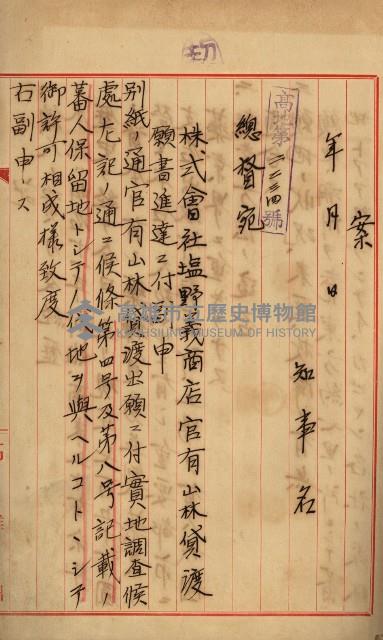 案
年月日
知事名
高地第二二三四號
總督宛
株式會社塩野義商店官有山林貸渡
願書進達ニ付副申
別紙ノ通官有山林貸渡出願ニ付實地調査候
處左記ノ通ニ候條第四号及第八号記載ノ
蕃人保留地トシテ代地ヲ與ヘルコトヽシテ
御許可相成様致度
右副申ス
高雄市立歷史博物館
KAOHSIUNG MUSEUM OF HISTORY